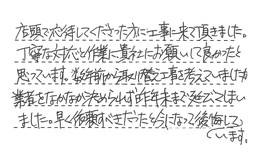 店頭で応待してくださった方に工事に来て頂きました。
丁寧な対応と作業に貴社にお願いして良かったと
思っています。数年前から取り替え工事を考えていましたが
業者をなかなか決められず昨年末まで延びてしまい
ました。早く依頼すべきだったと今になって後悔して
います。